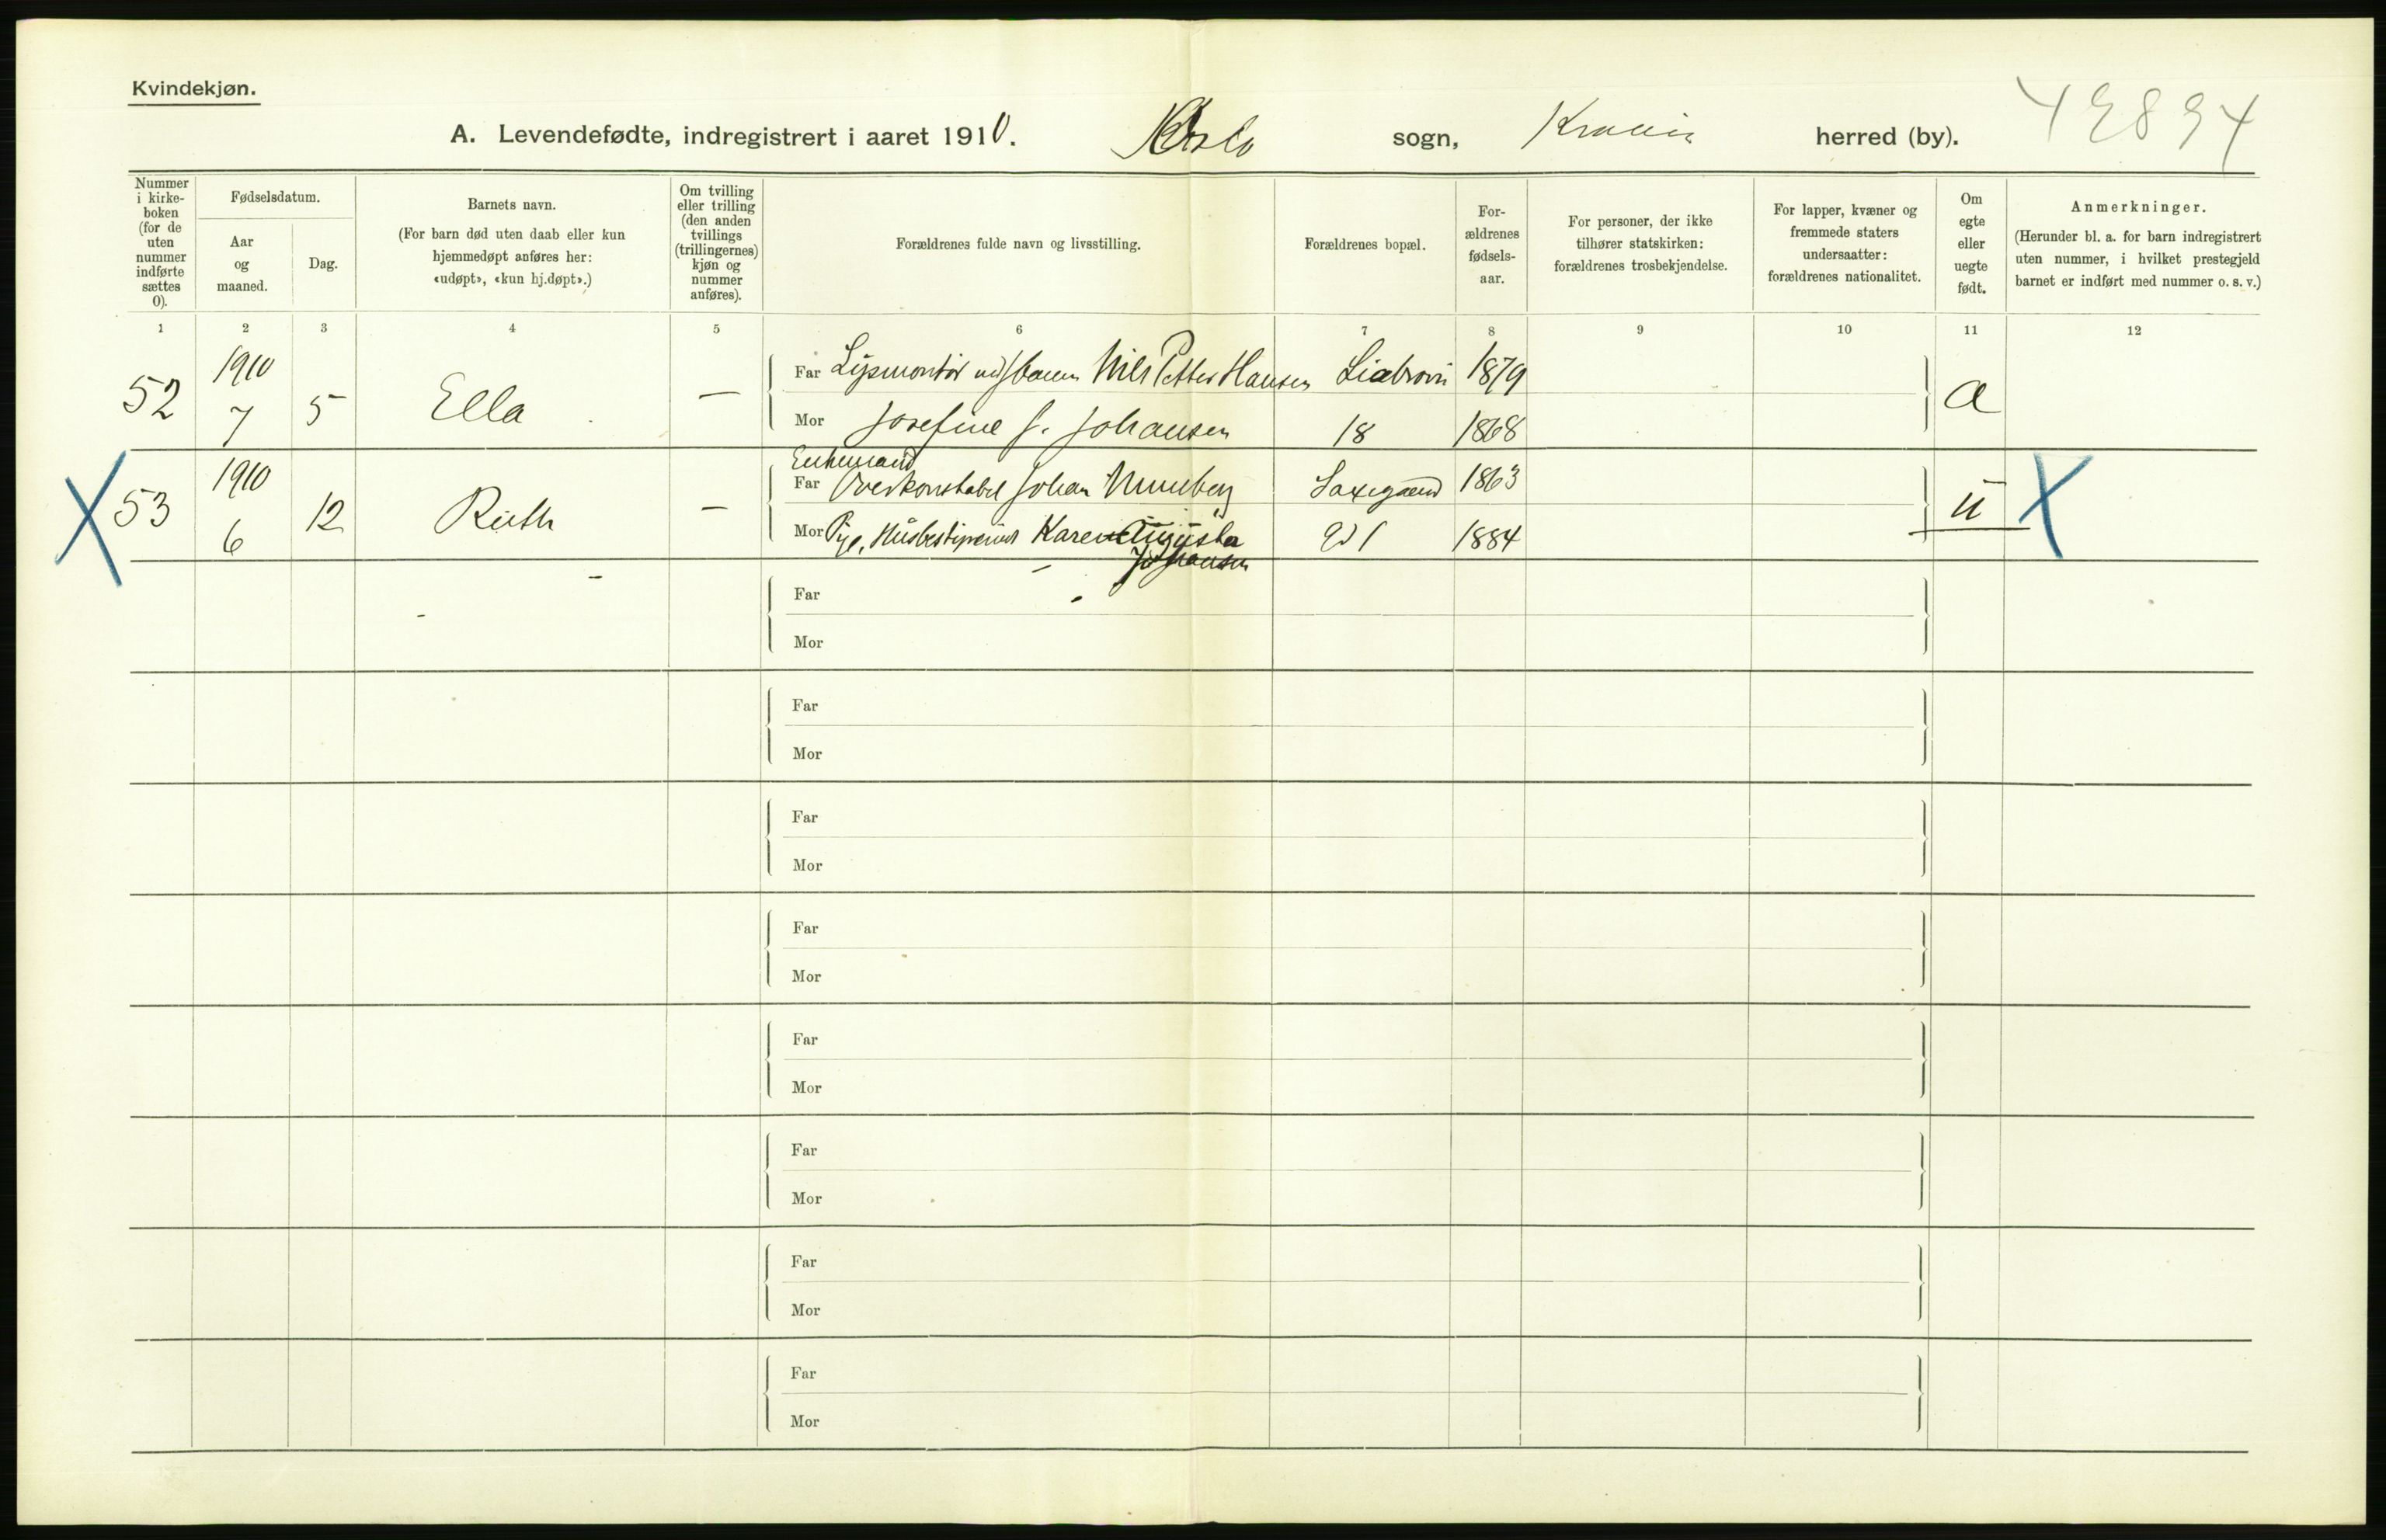 Kvindekjøn.
A. Levendefødte, indregistrert i aaret 1910. Oslo sogn, Kristia herred (by).
Nummer i kirkeboken (for de uten nummer indførte sættes 0).
Fødselsdatum.
Aar og maaned.
Dag.
Barnets navn.
(For barn død uten daab eller kun hjemmedøpt anføres her: «udøpt», «kun hj.døpt».)
Om tvilling eller trilling (den anden tvillings (trillingernes) kjøn og nummer anføres).
Forældrenes fulde navn og livsstilling.
Forældrenes bopæl.
Forældrenes fødselsaar.
For personer, der ikke tilhører statskirken: forældrenes trosbekjendelse.
For lapper, kvæner og fremmede staters undersaatter: forældrenes nationalitet.
Om egte eller uegte født.
Anmerkninger.
(Herunder bl. a. for barn indregistrert uten nummer, i hvilket prestegjeld barnet er indført med nummer o. s. v.)
1 2 3 4 5 6 7 8 9 10 11 12
52 1910 7 5 Ella —
Far Nils Petter Hansen Liabrovn 1879
Mor Josefine J. Johansen 18 1868
a
X 53 1910 6 12 Ruth —
Enkemand
Far Overkonstabel Johan Saxegaard 1863
Mor Pige, Karen Augusta 1884
Johansen
u X
Far
Mor
Far
Mor
Far
Mor
Far
Mor
Far
Mor
Far
Mor
Far
Mor
Far
Mor